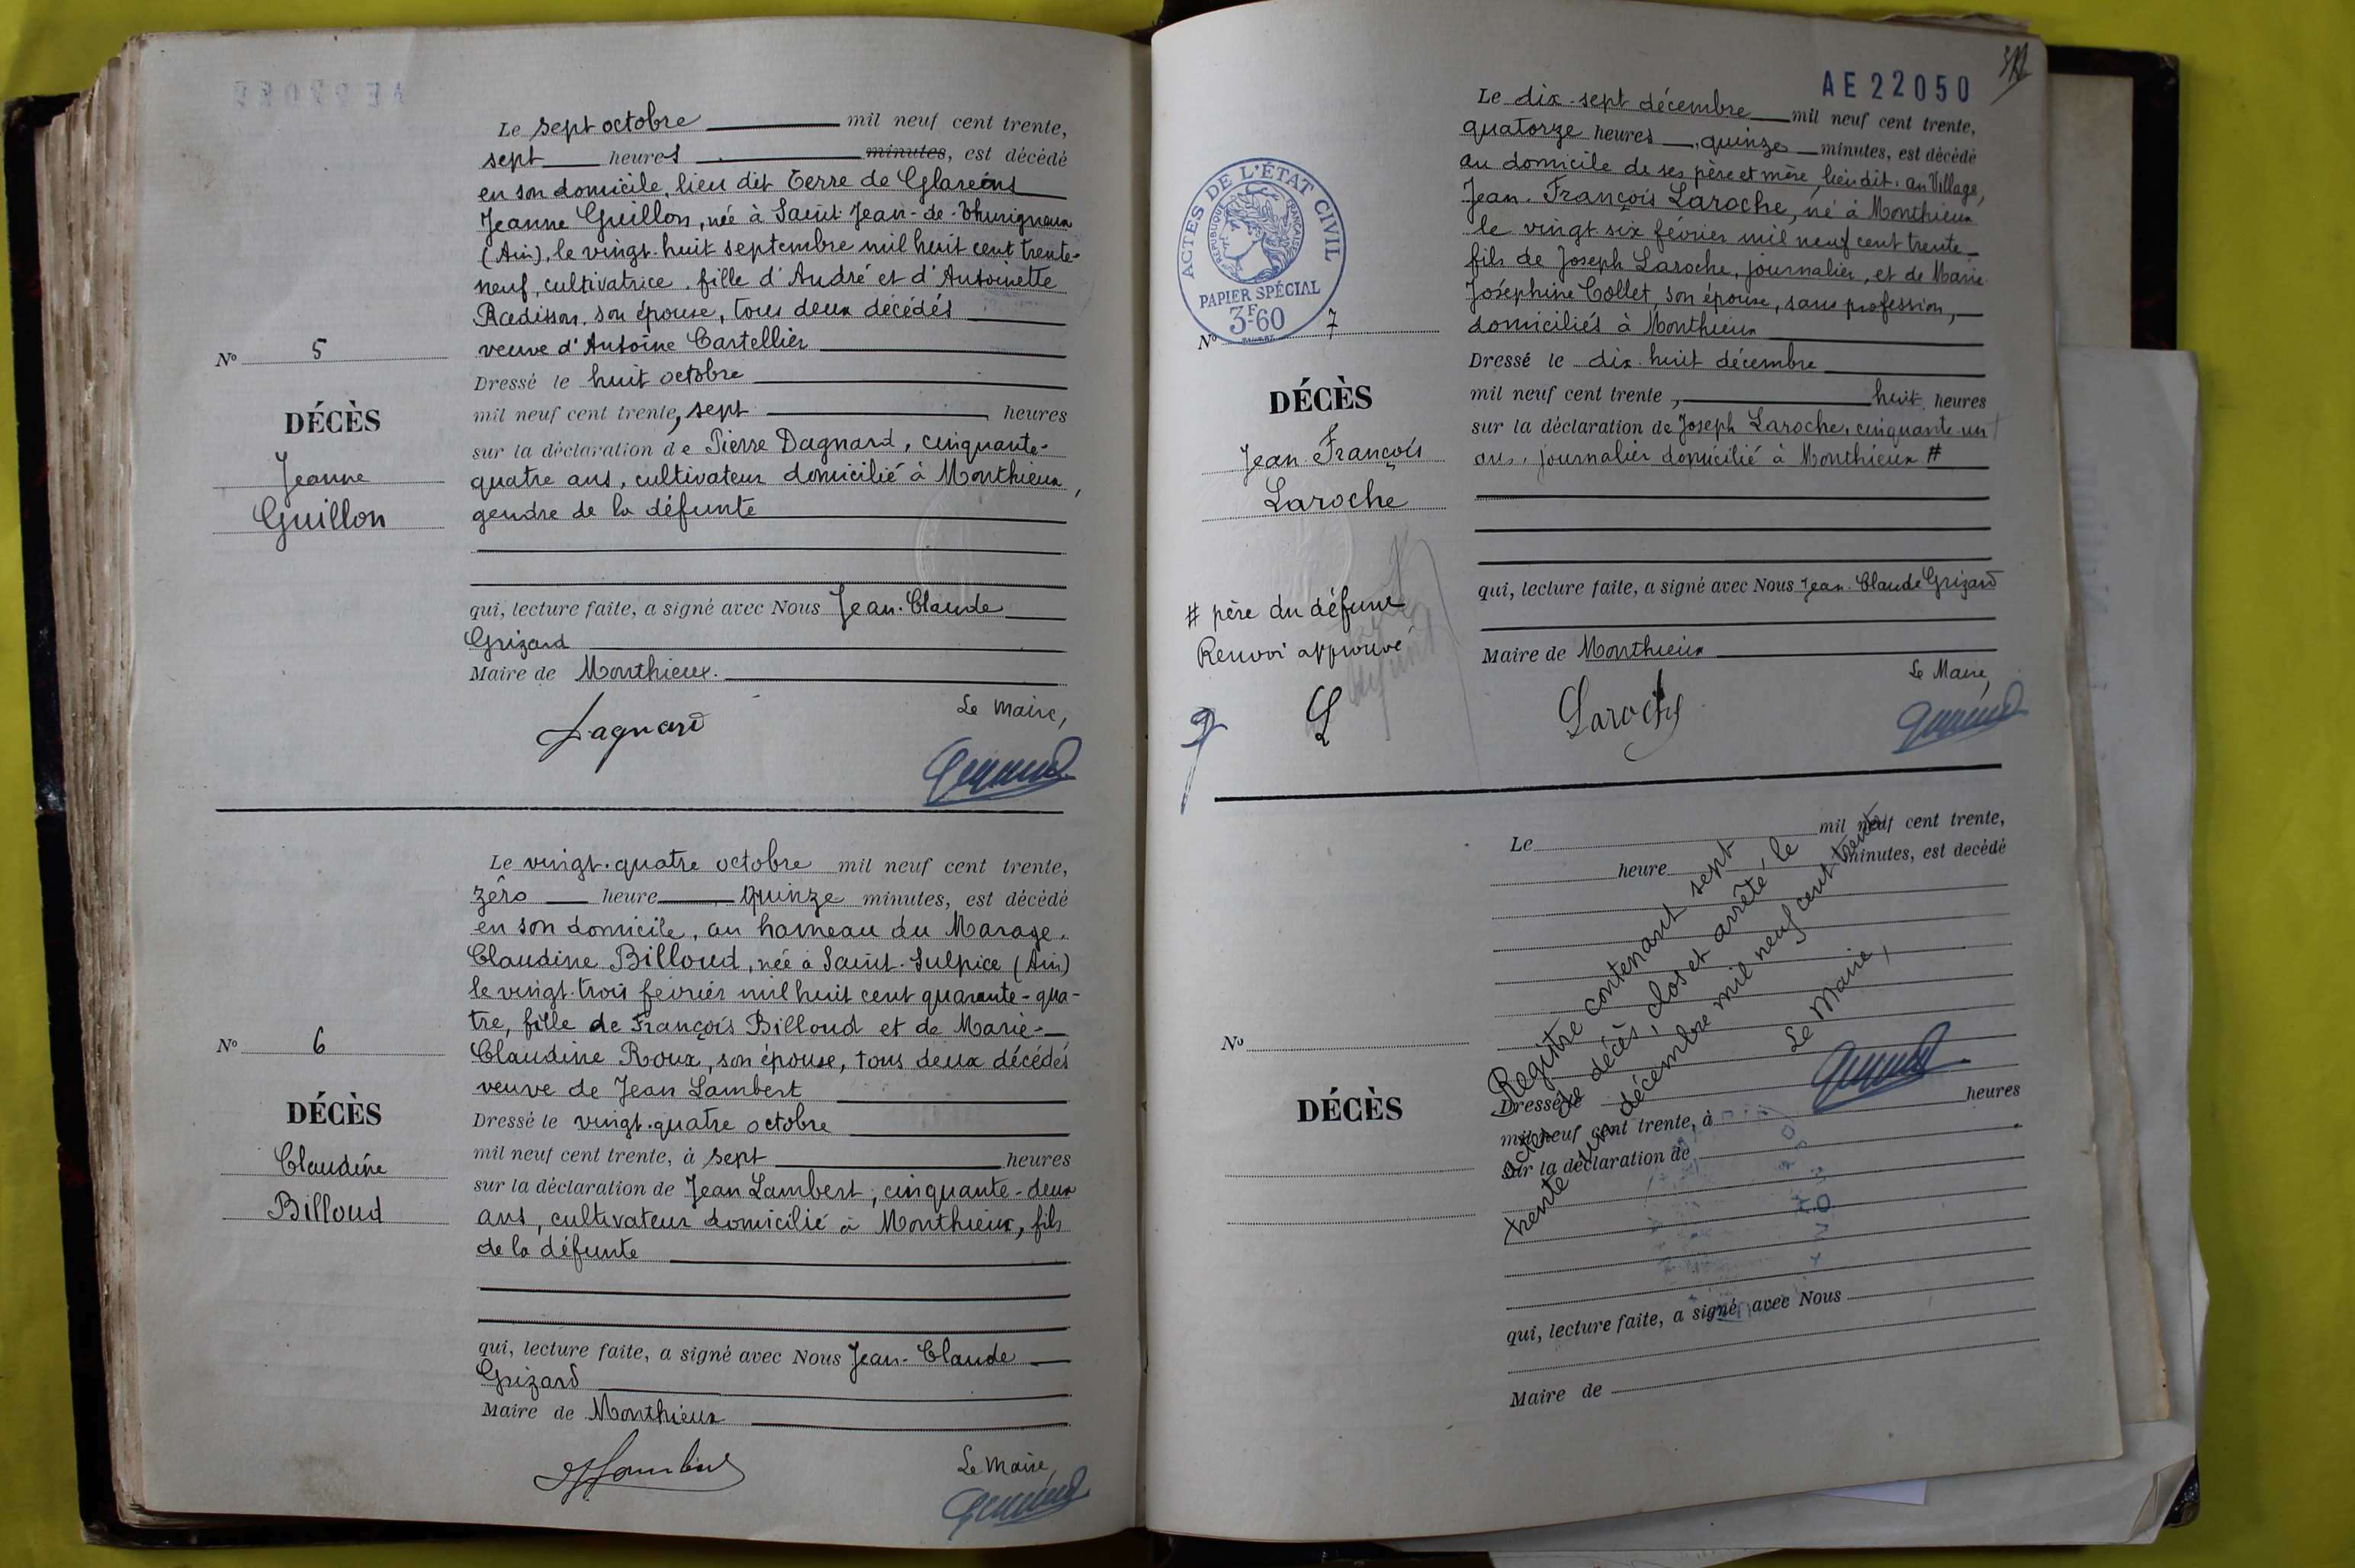 Le sept octobre mil neuf cent trente,
sept heures minutes, est décédé
en son domicile, lieu dit Terre de Glareins
Jeanne Guillon, née à Saint-Jean-de-Thurigneux
(Ain), le vingt-huit septembre mil huit cent trente-
neuf, cultivatrice, fille d'André et d'Antoinette
Radisson, son épouse, tous deux décédés
veuve d'Antoine Cartellier
Dressé le huit octobre
mil neuf cent trente, sept heures
sur la déclaration de Pierre Dagnard, cinquante-
quatre ans, cultivateur domicilié à Monthieux,
gendre de la défunte
qui, lecture faite, a signé avec Nous Jean-Claude
Grizard
Maire de Monthieux.
Le Maire,
Dagnard
N° 5
DÉCÈS
Jeanne
Guillon
Le vingt-quatre octobre mil neuf cent trente,
zéro heure quinze minutes, est décédé
en son domicile, au hameau du Marage,
Claudine Billoud, née à Saint-Sulpice (Ain)
le vingt-trois février mil huit cent quarante-qua-
tre, fille de François Billoud et de Marie-
Claudine Roux, son épouse, tous deux décédés
veuve de Jean Lambert
Dressé le vingt-quatre octobre
mil neuf cent trente, à sept heures
sur la déclaration de Jean Lambert, cinquante-deux
ans, cultivateur domicilié à Monthieux, fils
de la défunte
qui, lecture faite, a signé avec Nous Jean-Claude
Grizard
Maire de Monthieux
Le Maire,
N° 6
DÉCÈS
Claudine
Billoud
AE 22050
Le dix-sept décembre mil neuf cent trente,
quatorze heures, quinze minutes, est décédé
au domicile de ses père et mère, lieu dit: au Village,
Jean-François Laroche, né à Monthieux
le vingt-six février mil neuf cent trente
fils de Joseph Laroche, journalier, et de Marie-
Joséphine Collet, son épouse, sans profession,
domiciliés à Monthieux
Dressé le dix-huit décembre
mil neuf cent trente, huit heures
sur la déclaration de Joseph Laroche, cinquante-un
ans, journalier domicilié à Monthieux #
qui, lecture faite, a signé avec Nous Jean-Claude Grizard
Maire de Monthieux
Le Maire,
Laroche
ACTES DE L'ÉTAT CIVIL
RÉPUBLIQUE FRANÇAISE
PAPIER SPÉCIAL
3F60
N° 7
DÉCÈS
Jean-François
Laroche
# père du défunt
Renvoi approuvé
L
Le mil neuf cent trente,
heure minutes, est decédé
N°
DÉCÈS
Dressé le
mil neuf cent trente, à heures
sur la déclaration de
qui, lecture faite, a signé avec Nous
Maire de
Registre contenant sept
actes de décès, clos et arrêté le
trente-un décembre mil neuf cent trente
Le Maire,